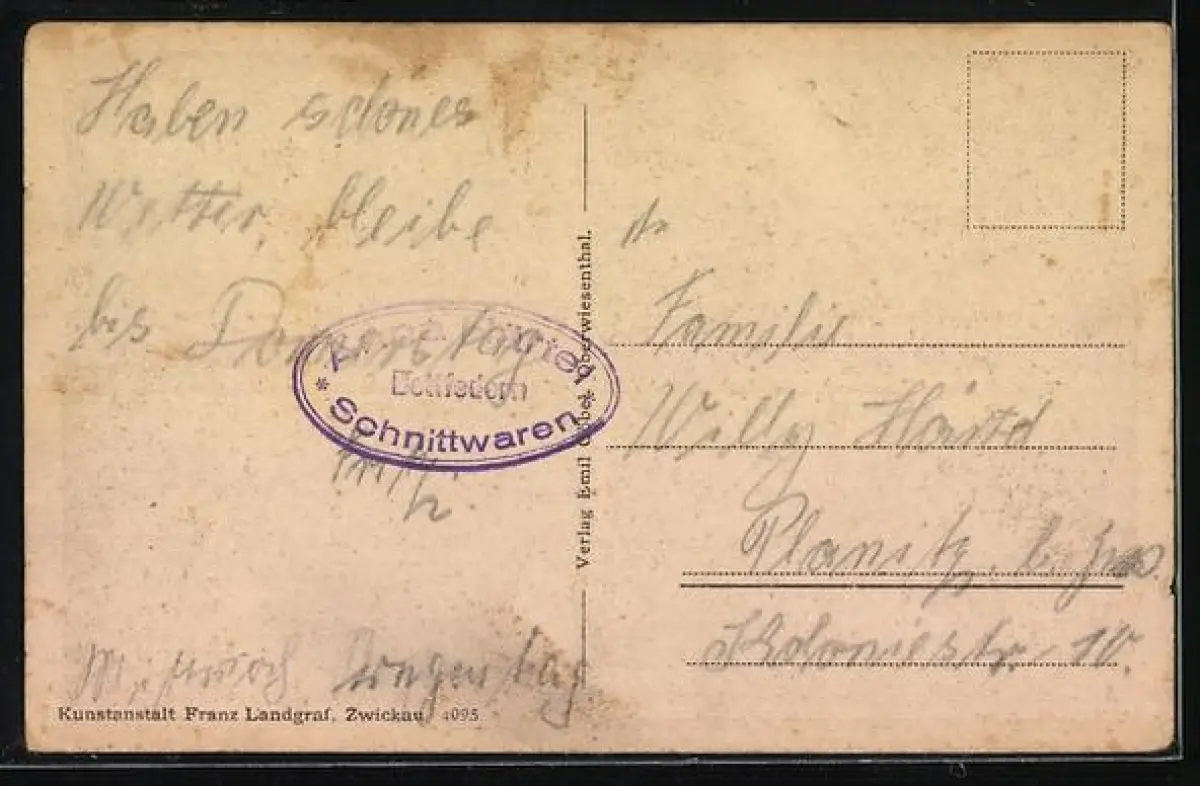 Haben schönes
Wetter, bleibe
bis Donnerstag
Mittwoch Regentag
Schnittwaren
Verlag Emil Oberwiesenthal.
An
Familie
Willy
Planitz b. Zw.
10.
Kunstanstalt Franz Landgraf, Zwickau 4095